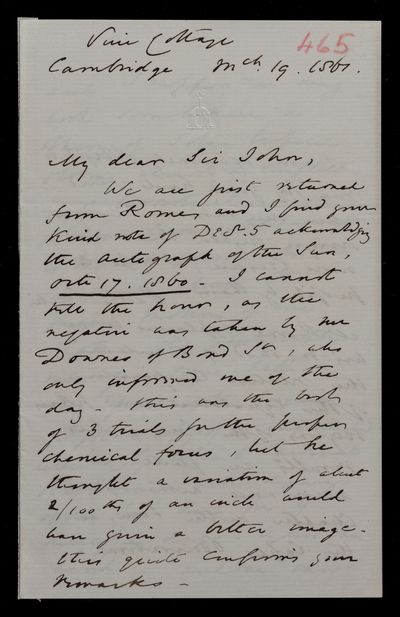 465
Vine Cottage
Cambridge Mch. 19. 1861.
My dear Sir John,
We are just returned
from Rome, and I find your
kind note of Decr. 5 acknowledging
the autograph of the Sun,
Octr 17. 1860 - I cannot
tell the hour, as the
negative was taken by Mr
Downes of Bond St, who
only informed me of the
day - this was the best
of 3 trials for the proper
chemical focus, but he
thought a variation of about
2/100ths of an inch would
have given a better image -
this quite confirms your
remarks -